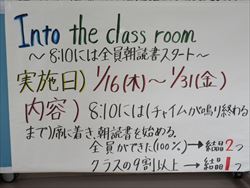 Into the class room
〜8:10には全員朝読書スタート〜
実施日) 1/16(木)〜1/31(金)
内容) 8:10には(チャイムが鳴り終わる
まで)席に着き、朝読書を始める。
全員ができた(100%)→結晶2つ
クラスの9割以上→結晶1つ